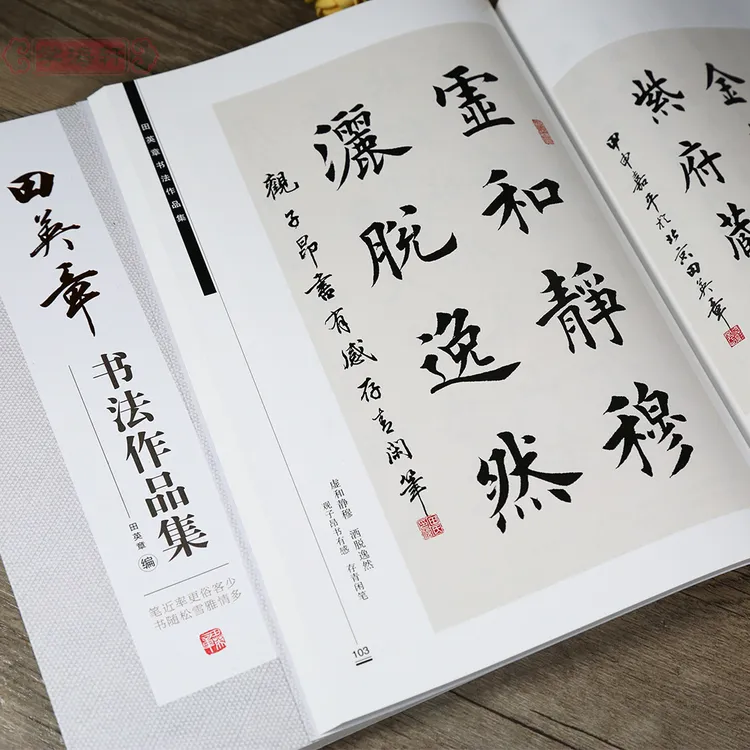 田英章
书法作品集
田英章 编
笔近率更俗客少
书随松雪雅情多
田英章书法作品集
虛和靜穆
灑脫逸然
觀子昂書有感存青閑筆
虚和静穆 洒脱逸然
观子昂书有感 存青闲笔
103
金
紫府藏
甲申嘉平於北京田英章